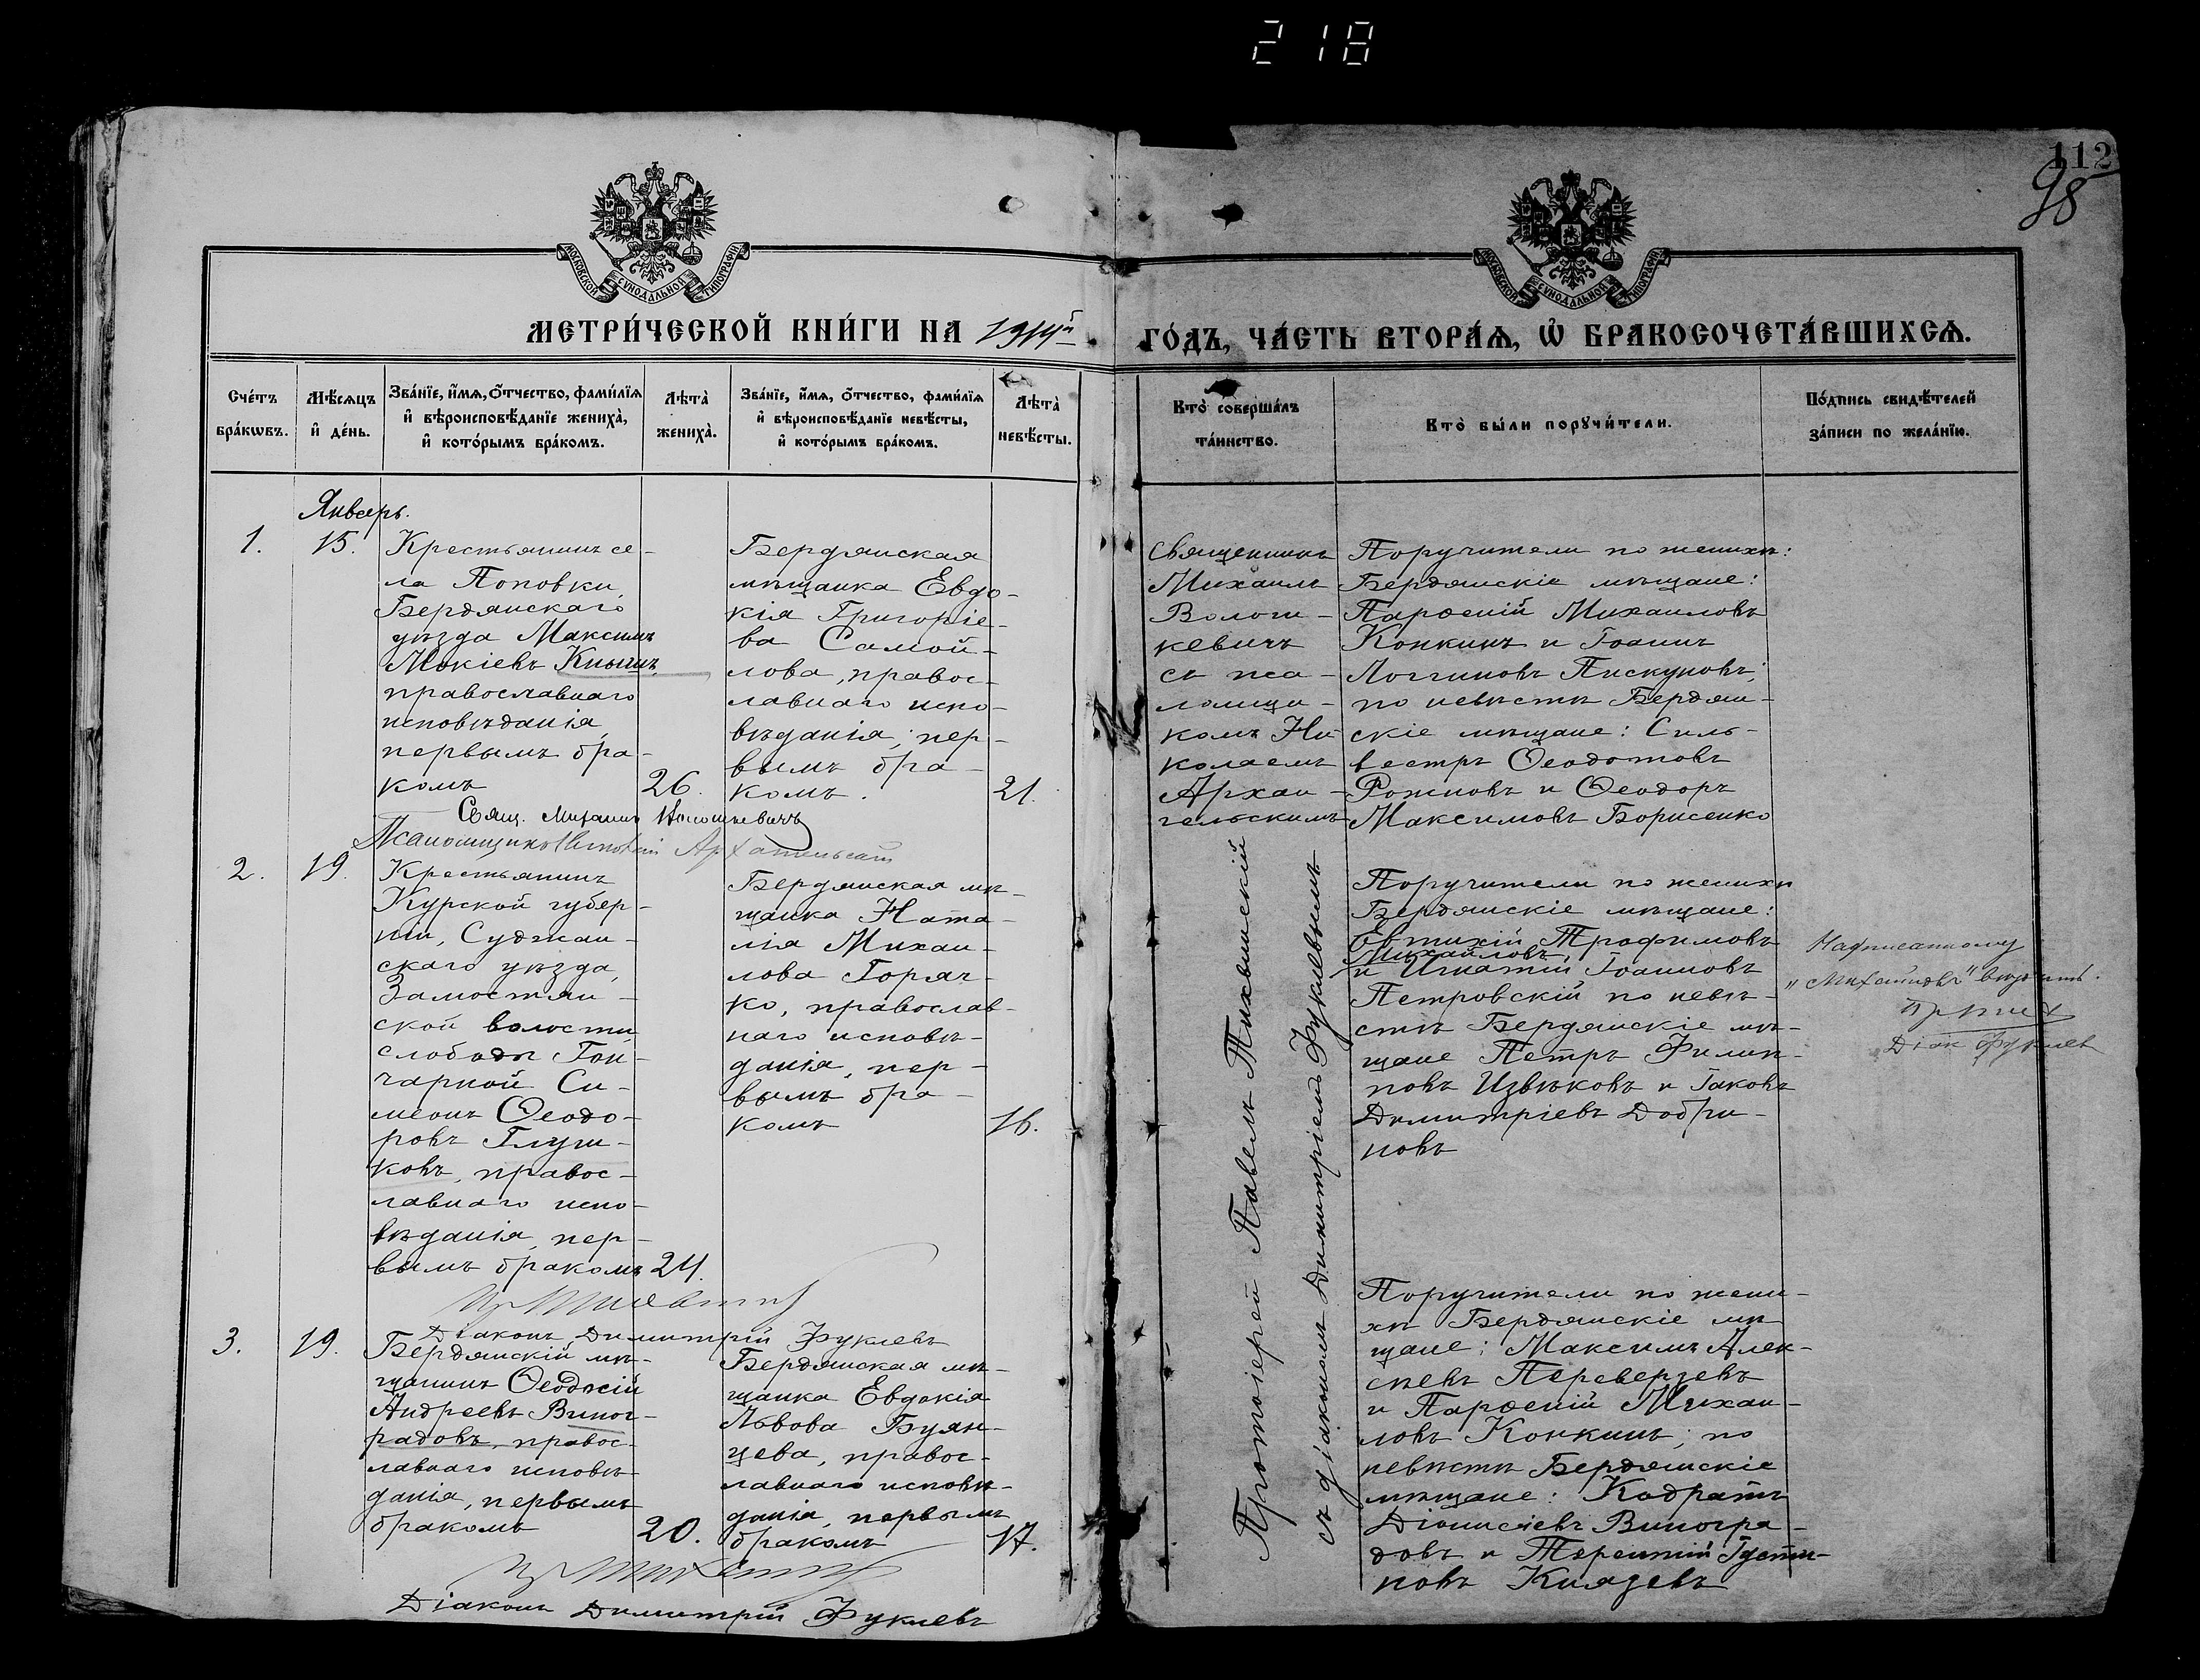 218
112
98
МОСКОВСКОЙ СѴНОДАЛЬНОЙ ТИПОГРАФІИ
МОСКОВСКОЙ СѴНОДАЛЬНОЙ ТИПОГРАФІИ
МЕТРИ́ЧЕСКОЙ КНИ́ГИ НА 1914й
ГО́ДЪ, ЧА́СТЬ ВТОРА́Ѧ, Ѽ БРАКОСОЧЕТА́ВШИХСѦ.
Сче́тъ
бра́кѡвъ.
Мѣ́сяцъ
и҆ де́нь.
Зва́нїе, и҆́мѧ, ѻ҆́тчество, фами́лїѧ
и҆ вѣроисповѣ́данїе жениха̀,
и҆ кото́рымъ бра́комъ.
Лѣта̀
жениха̀.
Зва́нїе, и҆́мѧ, ѻ҆́тчество, фами́лїѧ
и҆ вѣроисповѣ́данїе невѣ́сты,
и҆ кото́рымъ бра́комъ.
Лѣта̀
невѣ́сты.
Кто̀ соверша́лъ
та́инство.
Кто̀ бы́ли порꙋчи́тели.
По́дпись свидѣ́телей
за́писи по жела́нїю.
Январь.
1.
15.
Крестьянинъ се-
ла Поповки,
Бердянскаго
уѣзда Максимъ
Мокіевъ Книшъ,
православнаго
исповѣданія,
первымъ бра-
комъ
26.
Бердянская
мѣщанка Евдо-
кія Григоріе-
ва Самой-
лова, правос-
лавнаго испо-
вѣданія, пер-
вымъ бра-
комъ.
21.
Священникъ
Михаилъ
Волош-
кевичъ
съ пса-
ломщи-
комъ Ни-
колаемъ
Архан-
гельскимъ
Поручители по женихѣ:
Бердянскіе мѣщане:
Парѳеній Михаиловъ
Конкинъ и Іоаннъ
Логгиновъ Пискуновъ;
по невѣстѣ Бердян-
скіе мѣщане: Силь-
вестръ Ѳеодотовъ
Рожновъ и Ѳеодоръ
Максимовъ Борисенко
Свящ. Михаилъ Волошкевичъ
Псаломщикъ Николай Архангельскій
2.
19.
Крестьянинъ
Курской губер-
ніи, Суджан-
скаго уѣзда,
Замостян-
ской волости,
слободы Гон-
чарной Си-
меонъ Ѳеодо-
ровъ Глуш-
ковъ, правос-
лавнаго испо-
вѣданія, пер-
вымъ бракомъ
24.
Бердянская мѣ-
щанка Ната-
лія Михаи-
лова Горяч-
ко, православ-
наго исповѣ-
данія, пер-
вымъ бра-
комъ
16.
Протоіерей Павелъ Тихвинскій
съ діакономъ Димитріемъ Фуклевымъ
Поручители по женихѣ
Бердянскіе мѣщане:
Евтихій Трофимовъ
Михайловъ
и Игнатій Іоанновъ
Петровскій по невѣ-
стѣ Бердянскіе мѣ-
щане Петръ Филип-
повъ Извѣковъ и Іаковъ
Димитріевъ Добри-
новъ
Надписанному
„Михайловъ" вѣрить.
Діак Фуклев
Діаконъ Димитрій Фуклевъ
3.
19.
Бердянскій мѣ-
щанинъ Ѳеодосій
Андреевъ Виног-
радовъ, правос-
лавнаго исповѣ-
данія, первымъ
бракомъ
20.
Бердянская мѣ-
щанка Евдокія
Львова Буян-
цева, правос-
лавнаго исповѣ-
данія, первымъ
бракомъ
17.
Поручители по жени-
хѣ Бердянскіе мѣ
щане: Максимъ Алек-
сѣевъ Переверзевъ
и Парѳеній Михаи-
ловъ Конкинъ; по
невѣстѣ Бердянскіе
мѣщане: Кодратъ
Діонисіевъ Виногра-
довъ и Терентій Іусти-
новъ Князевъ
Діаконъ Димитрій Фуклевъ